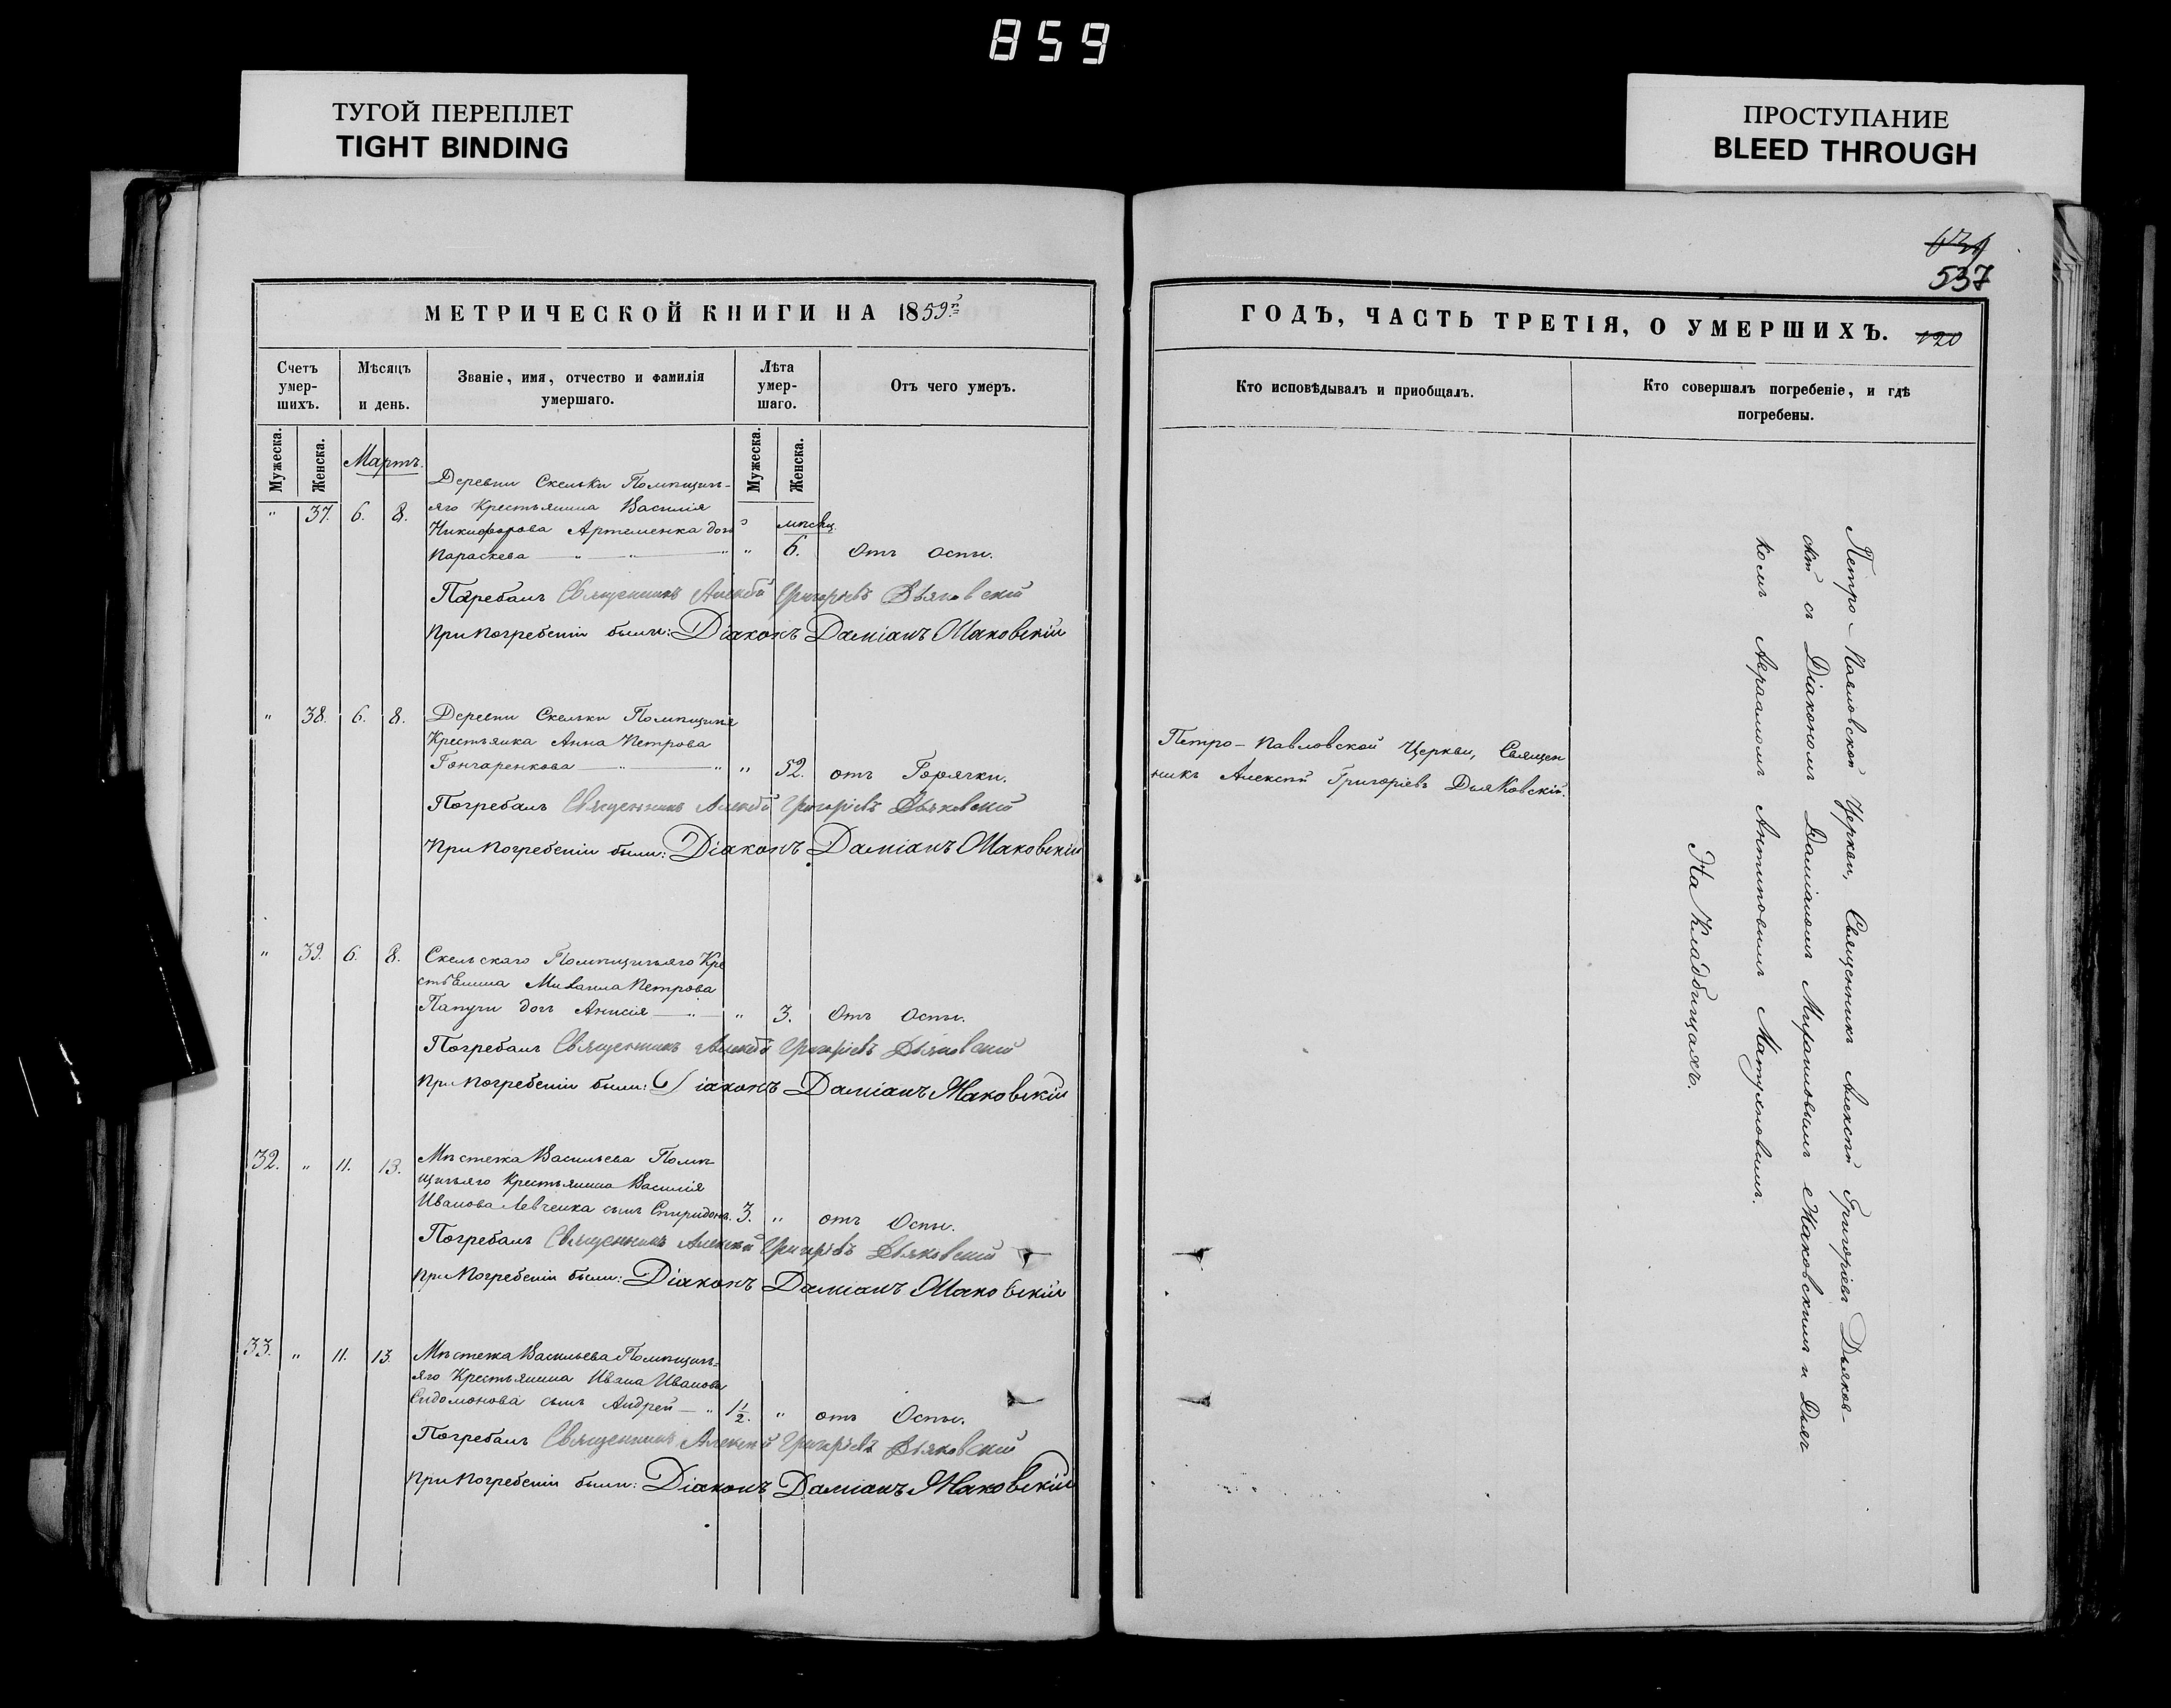 859
ТУГОЙ ПЕРЕПЛЕТ
TIGHT BINDING
ПРОСТУПАНИЕ
BLEED THROUGH
537
МЕТРИЧЕСКОЙ КНИГИ НА 1859 г.
ГОДЪ, ЧАСТЬ ТРЕТІЯ, О УМЕРШИХЪ. 120
Счетъ умер-шихъ.
Мѣсяцъ и день.
Званіе, имя, отчество и фамилія умершаго.
Лѣта умер-шаго.
Отъ чего умеръ.
Кто исповѣдывалъ и приобщалъ.
Кто совершалъ погребеніе, и гдѣ погребены.
Мужеска.
Женска.
Мартъ.
Мужеска.
Женска.
Деревни Скельки Помѣщичь-
" 37. 6. 8. яго Крестьянина Василія
Никифорова Артеменка дочь мѣсяц.
Параскева " " " " 6. отъ оспы.
Погребалъ Священникъ Алексѣй Григорьевъ Дьяковскій
При погребеніи были: Діаконъ Даміанъ Маковскій
" 38. 6. 8. Деревни Скельки Помѣщичья
Крестьянка Анна Петрова
Гончаренкова " " " 52. отъ Горячки.
Погребалъ Священникъ Алексѣй Григоріевъ Дьяковскій
При погребеніи были: Діаконъ Даміанъ Маковскій
" 39. 6. 8. Скельскаго Помѣщичьяго Кре
стьянина Михаила Петрова
Папучи дочь Анисія " " 3. отъ Оспы.
Погребалъ Священникъ Алексѣй Григоріевъ Дьяковскій
При погребеніи были: Діаконъ Даміанъ Маковскій
32. " 11. 13. Мѣстечка Васильева Помѣ
щичьяго Крестьянина Василія
Иванова Левченка сынъ Спиридонъ. 3. " отъ Оспы.
Погребалъ Священникъ Алексѣй Григоріевъ Дьяковскій
При погребеніи были: Діаконъ Даміанъ Маковскій
33. " 11. 13. Мѣстечка Васильева Помѣщичь=
яго Крестьянина Ивана Иванова
сынъ Андрей " 1 1/2. " отъ Оспы.
Погребалъ Священникъ Алексѣй Григоріевъ Дьяковскій
При погребеніи были: Діаконъ Даміанъ Маковскій
Петро-Павловской Церкви, Священ
никъ Алексѣй Григоріевъ Дьяковскій.
Петро-Павловской Церкви, Священникъ Алексѣй Григоріевъ Дьяков-
скій съ Діакономъ Даміаномъ Михаиловымъ Маковскимъ и Дьяч
комъ Авраамомъ Антиповымъ
На Кладбищахъ.